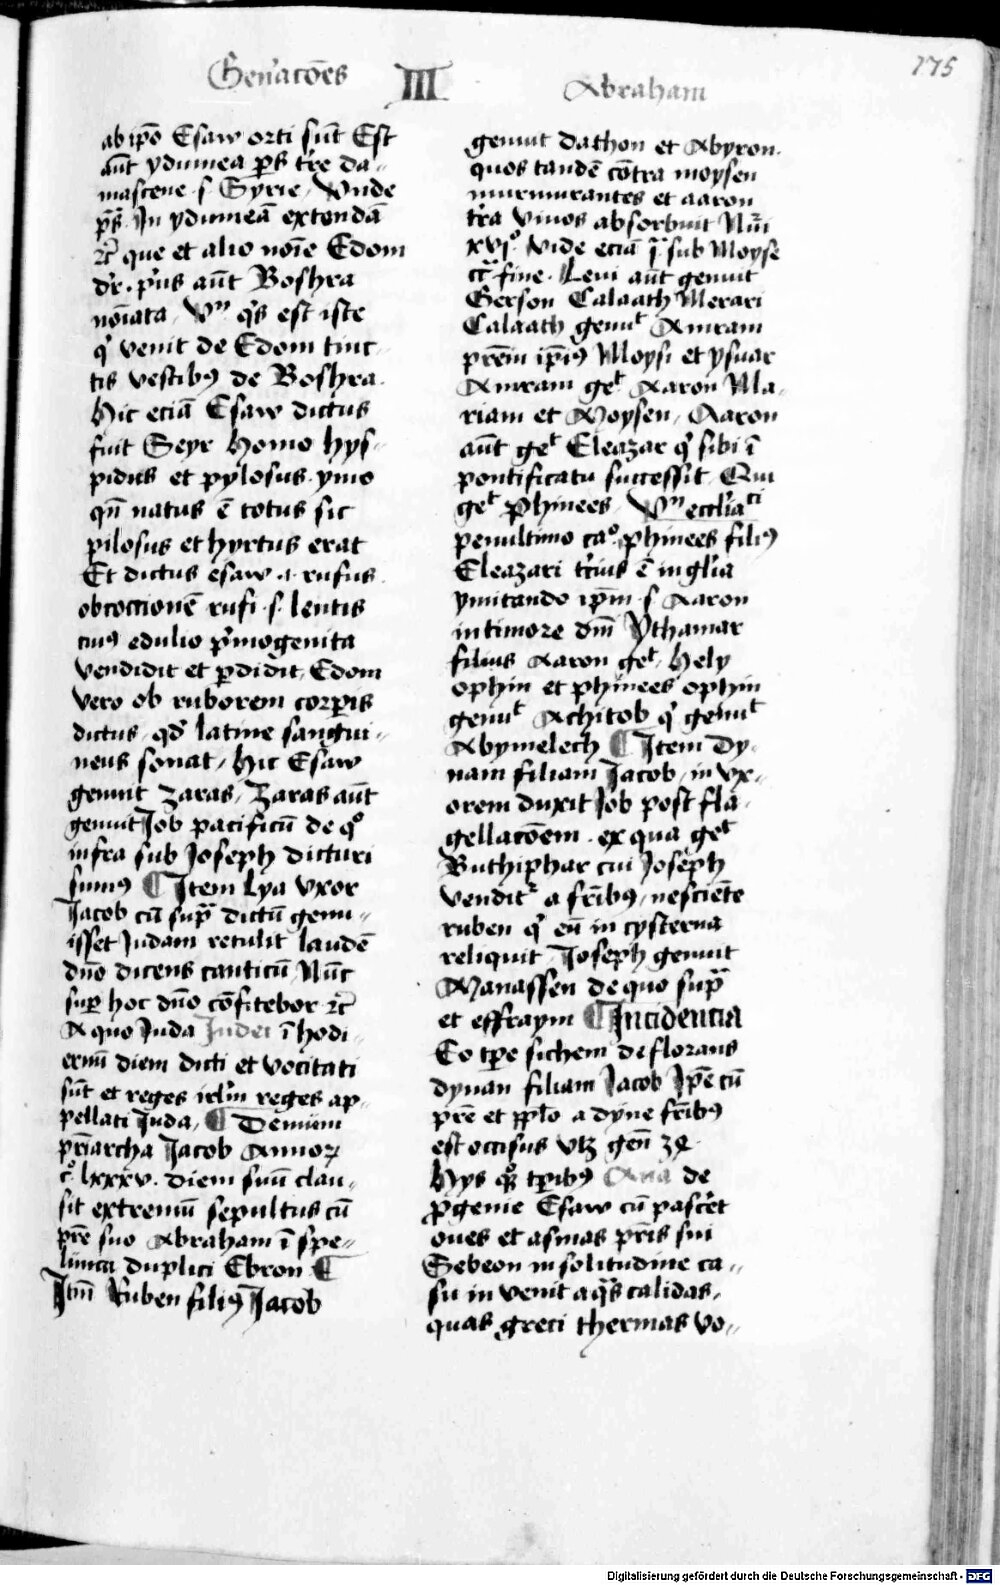 Gen'acōes III Abraham
175
ab ipō Esaw orti sūt Est
aūt ydumea p̄s tre da-
mascene .s. Syrie, Vnde
p̄s. In ydumeā extendā
⁊c̄ que et alio noīe Edom
dr̄. p'us aūt Boshra
noīata, Vn̄ q's est iste
q' venit de Edom tinc-
tis vestibꝰ de Boshra.
Hic eciā Esaw dictus
fuit Seyr homo hys-
pidus et pylosus. ymo
qn̄ natus ē totus sic
pilosus et hyrtus erat
Et dictus esaw .i. rufus
ob coccionē rufi .s. lentis
cuiꝰ edulio p'mogenita
vendidit et p̄didit, Edom
vero ob ruborem corp̄is
dictus, qd' latine sangui-
neus sonat, Hic Esaw
genuit zaras, Zaras aūt
genuit Job pacificū de qº
infra sub Joseph dicturi
sumꝰ ¶ Item Lya vxor
Jacob cū sup̄ᵃ dictū genu-
isset Judam retulit laudē
dn̄o dicens canticū Nūc
sup̄ hoc dn̄o cōfitebor ⁊c̄
A quo Juda Judei ī hodi-
ernū diem dicti et vocitati
sūt et reges irlm̄ reges ap-
pellati Juda, ¶ Demum
pr̄iarcha Jacob Annoꝝ
cº lxxxv. diem suū clau-
sit extremū sepultus cū
pr̄e suo Abraham ī spe-
lunca duplici Ebron ¶
Itm̄ Ruben filiꝰ Jacob
genuit dathon et Abyron.
quos tandē cōtra moysen
murmurantes et aaron
tr̄a viuos absorbuit Nūi
xvjº. Vide eciā jᵃ. sub Moyse
cᵃ fine. Leui aūt genuit
Gerson Calaath Merari
Calaath genuᵗ Amram
pr̄em ip̄iꝰ Moysi et ysuar
Amram geᵗ Aaron Ma-
riam et Moysen, Aaron
aūt geᵗ Eleazar q' sibi ī
pontificatu successit. Qui
geᵗ Phinees, Vn̄ eccl'iᵃᶜⁱ
penultimo caº. phinees filiꝰ
Eleazari t'cius ē in gl'ia
ymitando ip̄m .s. Aaron
in timore dn̄i Ythamar
filius Aaron geᵗ, Hely
ophin et phinees ophin
genuᵗ Achitob q' genuᵗ
Abymelech ¶ Item Dy-
nam filiam Jacob, in vx-
orem duxit Job post fla-
gellacōem. ex qua geᵗ
Buthiphar cui Joseph
venditʳ a fr̄ibꝰ, nesciēte
ruben q' eū in cysterna
reliquit, Joseph genuit
Manassen de quo sup̄ᵃ
et effraym ¶ Incidencia
Eo tp̄e sichem deflorans
dynan filiam Jacob Ip̄e cū
pr̄e et pp̄lo a dyne fr̄ibꝰ
est occisus vtꝫ gen̄ 34.
Hys qꝫ tp̄ibꝰ Ana de
p̄genie Esaw cū pasc'et
oues et asinas pr̄is sui
Sebeon in solitudine ca-
su in venit aq's calidas,
quas greci thermas vo-
Digitalisierung gefördert durch die Deutsche Forschungsgemeinschaft - DFG